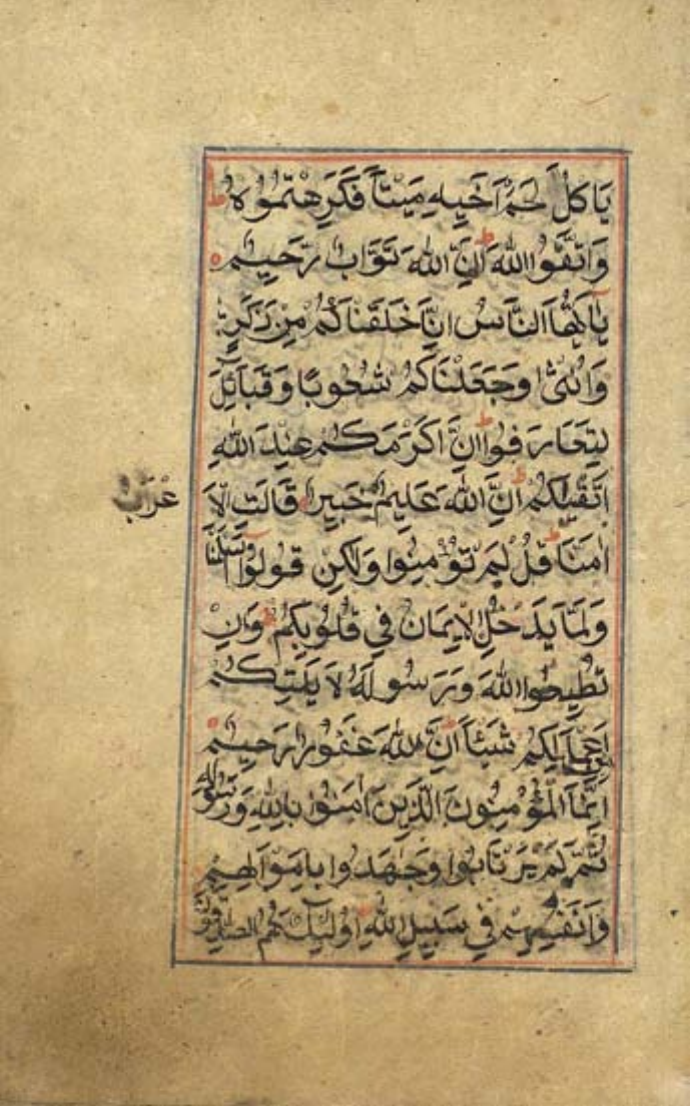 يَاكُلَ لَحْمَ اَخِيهِ مَيْتًا فَكَرِهْتُمُوهُ ط
وَاتَّقُوا اللّٰهَ اِنَّ اللّٰهَ تَوَّابٌ رَّحِيمٌ
يٰاَيُّهَا النَّاسُ اِنَّا خَلَقْنَاكُمْ مِنْ ذَكَرٍ
وَاُنْثٰى وَجَعَلْنَاكُمْ شُعُوبًا وَقَبَآئِلَ
لِتَعَارَفُوا اِنَّ اَكْرَمَكُمْ عِنْدَ اللّٰهِ
اَتْقٰيكُمْ اِنَّ اللّٰهَ عَلِيمٌ خَبِيرٌ قَالَتِ الْاَ
عْرَابُ
اٰمَنَّا قُلْ لَمْ تُؤْمِنُوا وَلٰكِنْ قُولُوٓا اَسْلَمْنَا
وَلَمَّا يَدْخُلِ الْاِيمَانُ فِي قُلُوبِكُمْ وَاِنْ
تُطِيعُوا اللّٰهَ وَرَسُولَهُ لَا يَلِتْكُمْ
مِنْ اَعْمَالِكُمْ شَيْئًا اِنَّ اللّٰهَ غَفُورٌ رَحِيمٌ
اِنَّمَا الْمُؤْمِنُونَ الَّذِينَ اٰمَنُوا بِاللّٰهِ وَرَسُولِهِ
ثُمَّ لَمْ يَرْتَابُوا وَجٰهَدُوا بِاَمْوَالِهِمْ
وَاَنْفُسِهِمْ فِي سَبِيلِ اللّٰهِ اُولٰٓئِكَ هُمُ الصّٰدِقُونَ